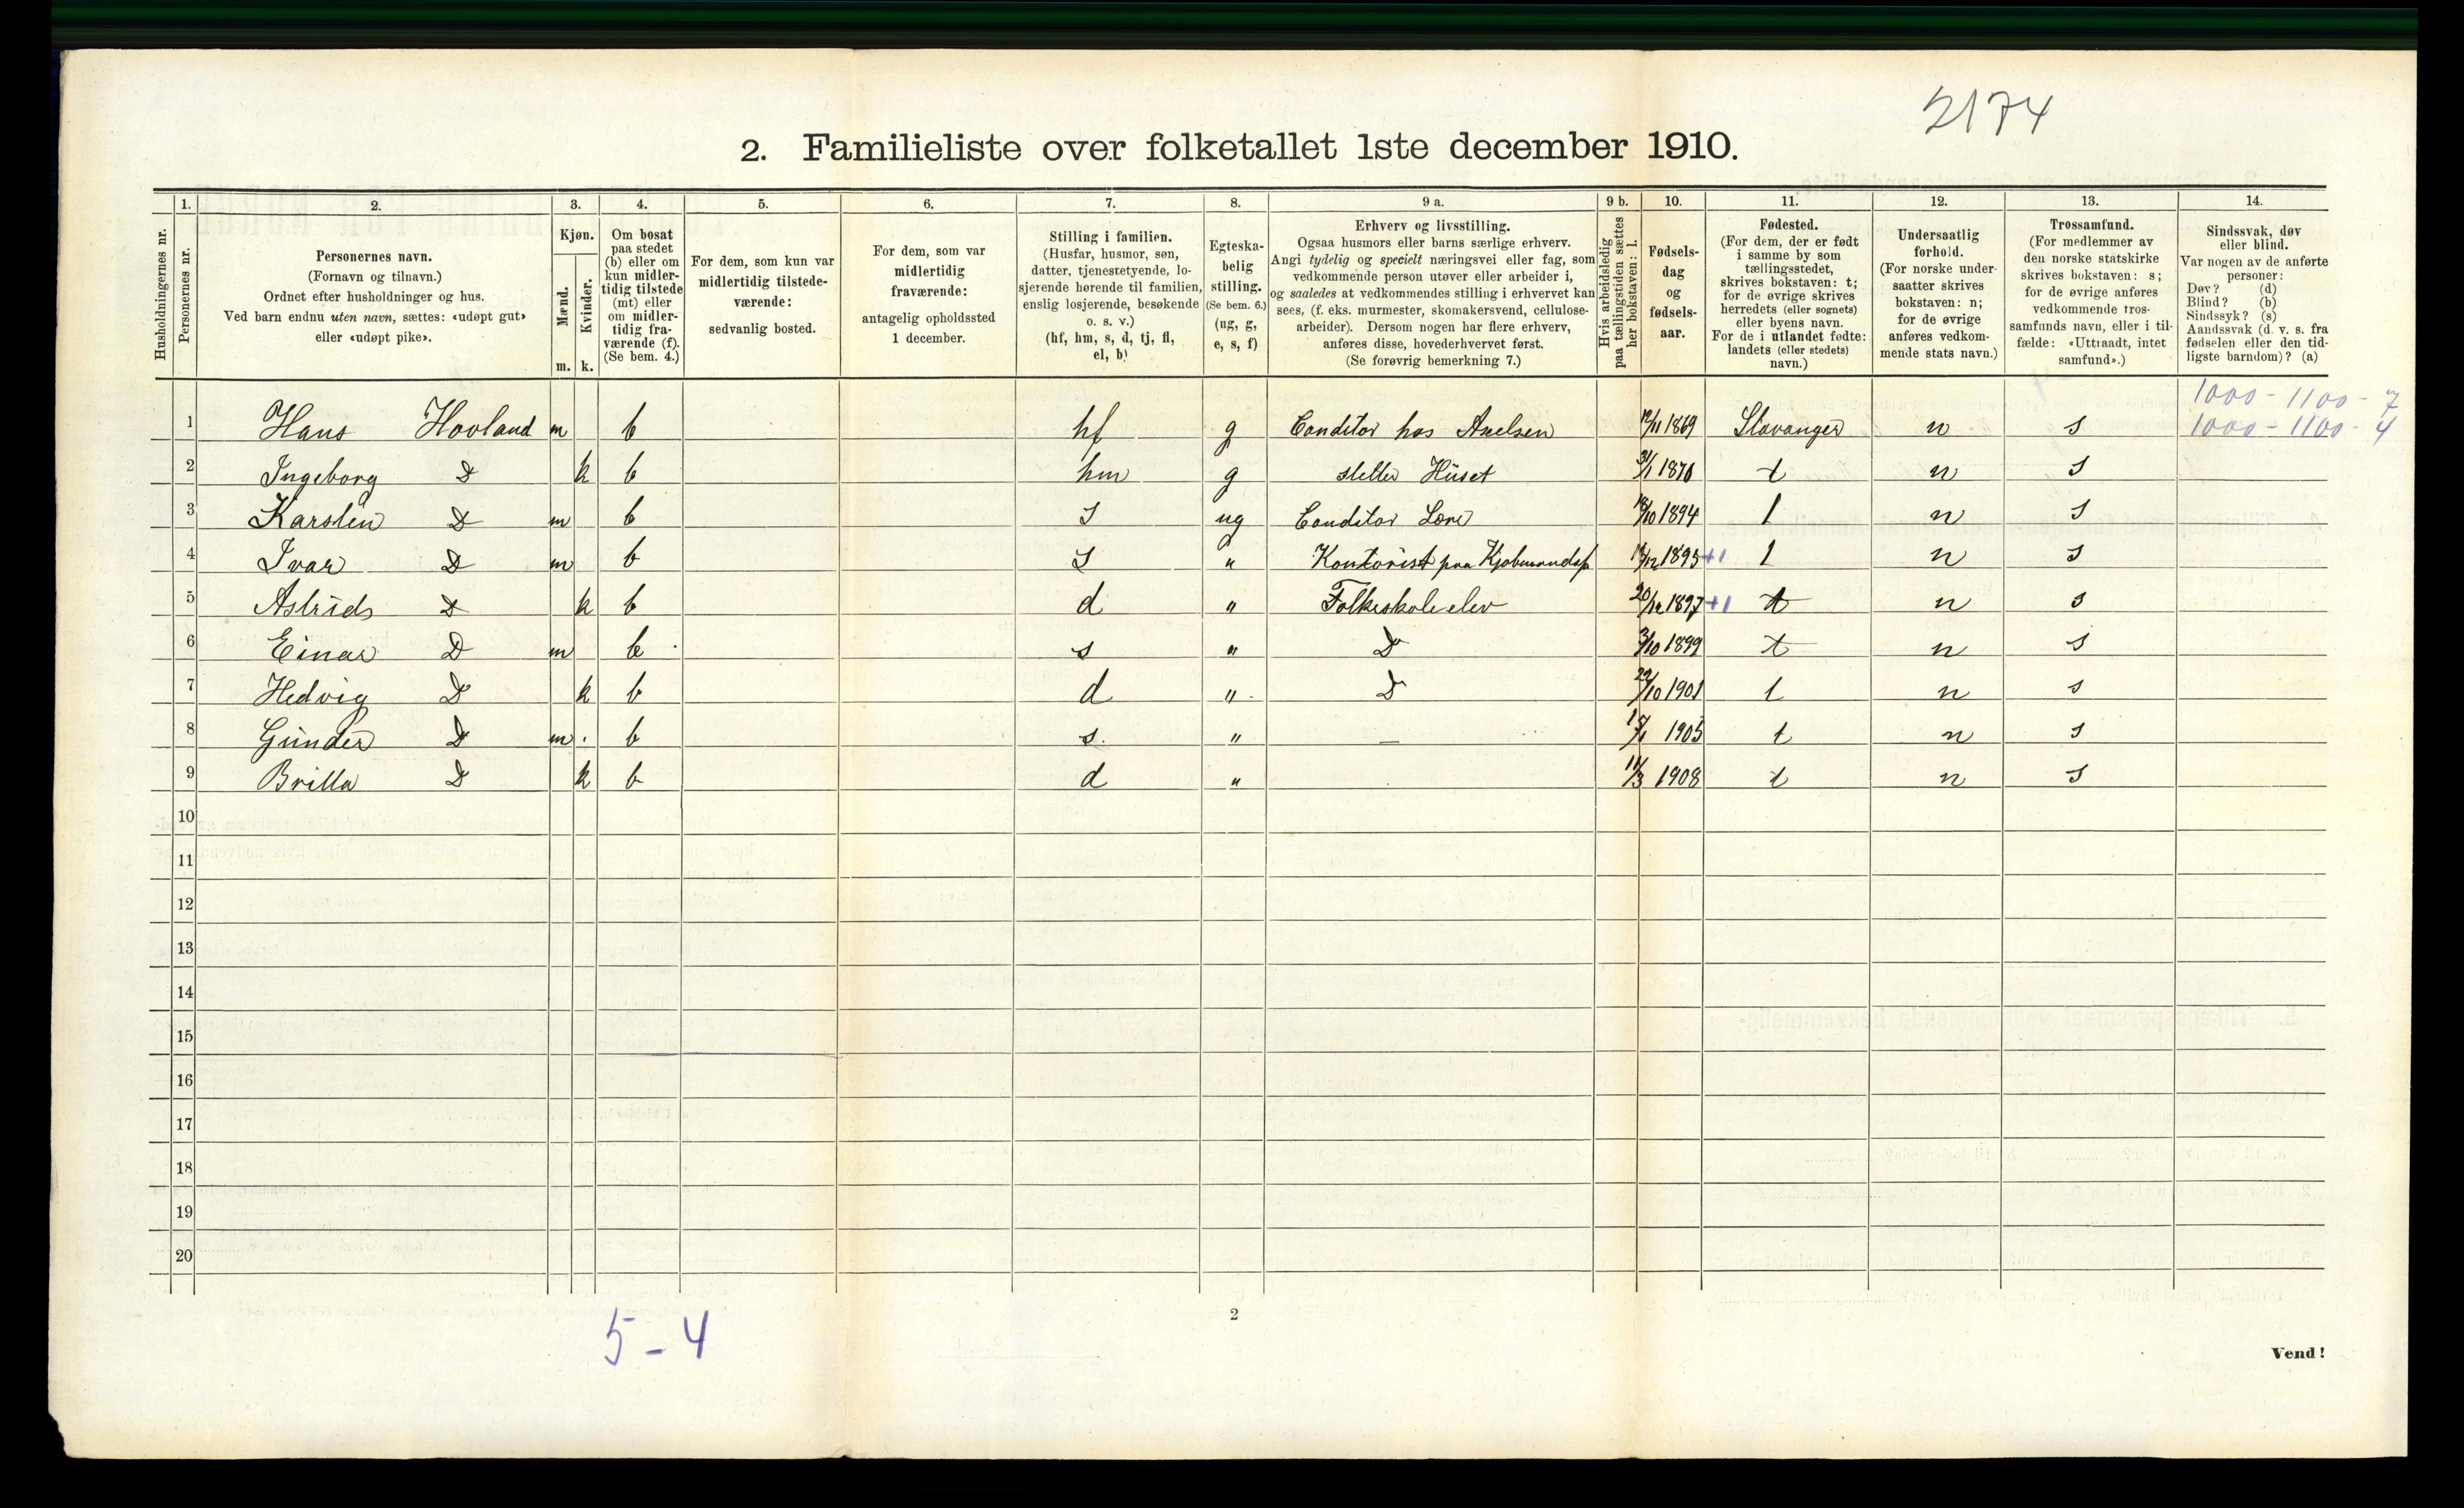 2174
2. Familieliste over folketallet 1ste december 1910.
1. 2. 3. 4. 5. 6. 7. 8. 9 a. 9 b. 10. 11. 12. 13. 14.
Husholdningernes nr.
Personernes nr.
Personernes navn.
(Fornavn og tilnavn.)
Ordnet efter husholdninger og hus.
Ved barn endnu uten navn, sættes: «udøpt gut»
eller «udøpt pike».
Kjøn.
Mænd.
Kvinder.
m. k.
Om bosat
paa stedet
(b) eller om
kun midler-
tidig tilstede
(mt) eller
om midler-
tidig fra-
værende (f).
(Se bem. 4.)
For dem, som kun var
midlertidig tilstede-
værende:
sedvanlig bosted.
For dem, som var
midlertidig
fraværende:
antagelig opholdssted
1 december.
Stilling i familien.
(Husfar, husmor, søn,
datter, tjenestetyende, lo-
sjerende hørende til familien,
enslig losjerende, besøkende
o. s. v.)
(hf, hm, s, d, tj, fl,
el, b)
Egteska-
belig
stilling.
(Se bem. 6.)
(ug, g,
e, s, f)
Erhverv og livsstilling.
Ogsaa husmors eller barns særlige erhverv.
Angi tydelig og specielt næringsvei eller fag, som
vedkommende person utøver eller arbeider i,
og saaledes at vedkommendes stilling i erhvervet kan
sees, (f. eks. murmester, skomakersvend, cellulose-
arbeider). Dersom nogen har flere erhverv,
anføres disse, hovederhvervet først.
(Se forøvrig bemerkning 7.)
Hvis arbeidsledig
paa tællingstiden sættes
her bokstaven: l.
Fødsels-
dag
og
fødsels-
aar.
Fødested.
(For dem, der er født
i samme by som
tællingsstedet,
skrives bokstaven: t;
for de øvrige skrives
herredets (eller sognets)
eller byens navn.
For de i utlandet fødte:
landets (eller stedets)
navn.)
Undersaatlig
forhold.
(For norske under-
saatter skrives
bokstaven: n;
for de øvrige
anføres vedkom-
mende stats navn.)
Trossamfund.
(For medlemmer av
den norske statskirke
skrives bokstaven: s;
for de øvrige anføres
vedkommende tros-
samfunds navn, eller i til-
fælde: «Uttraadt, intet
samfund».)
Sindssvak, døv
eller blind.
Var nogen av de anførte
personer:
Døv? (d)
Blind? (b)
Sindssyk? (s)
Aandssvak (d. v. s. fra
fødselen eller den tid-
ligste barndom)? (a)
1000 - 1100 - 7
1000 - 1100 - 4
1 Hans Hovland m b hf g Conditor hos Axelsen 12/11 1869 Stavanger n s
2 Ingeborg D k b hm g steller Huset 31/1 1870 t n s
3 Karsten D m b s ug Conditor Lære 18/10 1894 t n s
4 Ivar D m b s " Kontorist paa 1895 +1 t n s
5 Astrids D k b d " Folkeskoleelev 20/12 1897 +1 t n s
6 Einar D m b s " D 3/10 1899 t n s
7 Hedvig D k b d " D 29/10 1901 t n s
8 Gunder D m b s " — 1905 t n s
9 Britta D k b d " 11/3 1908 t n s
10
11
12
13
14
15
16
17
18
19
20
5 - 4
2
Vend!